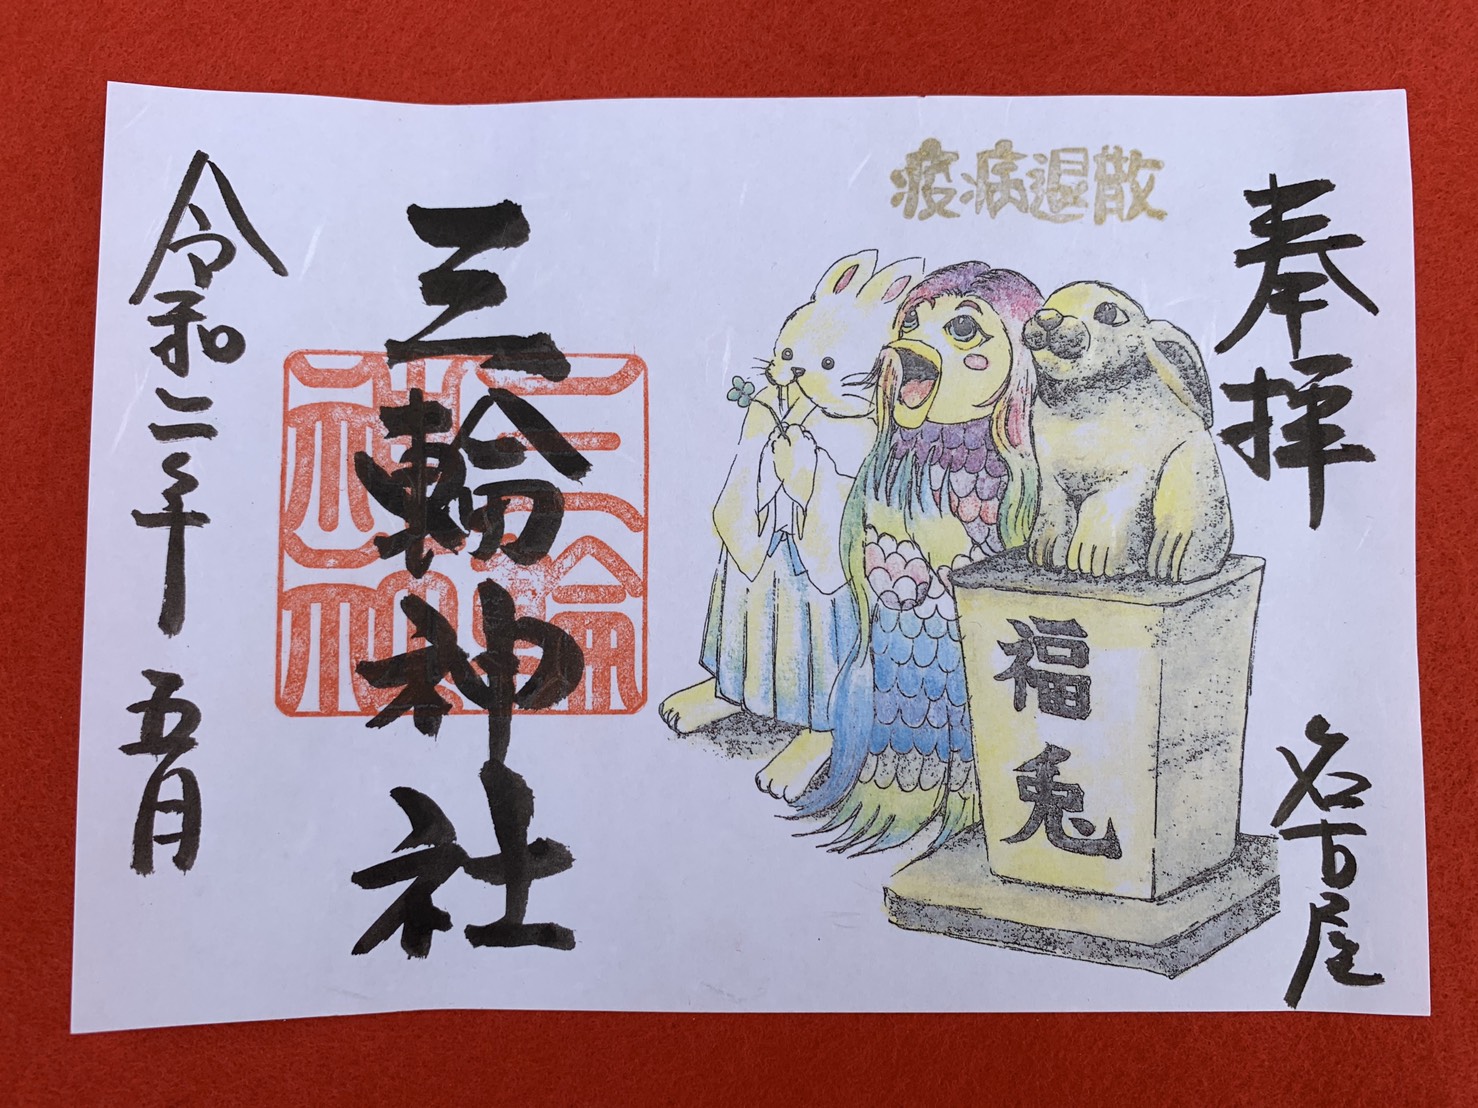 奉拝
名古屋
疫病退散
福兎
三輪神社
三輪
神社
令和二年 五月